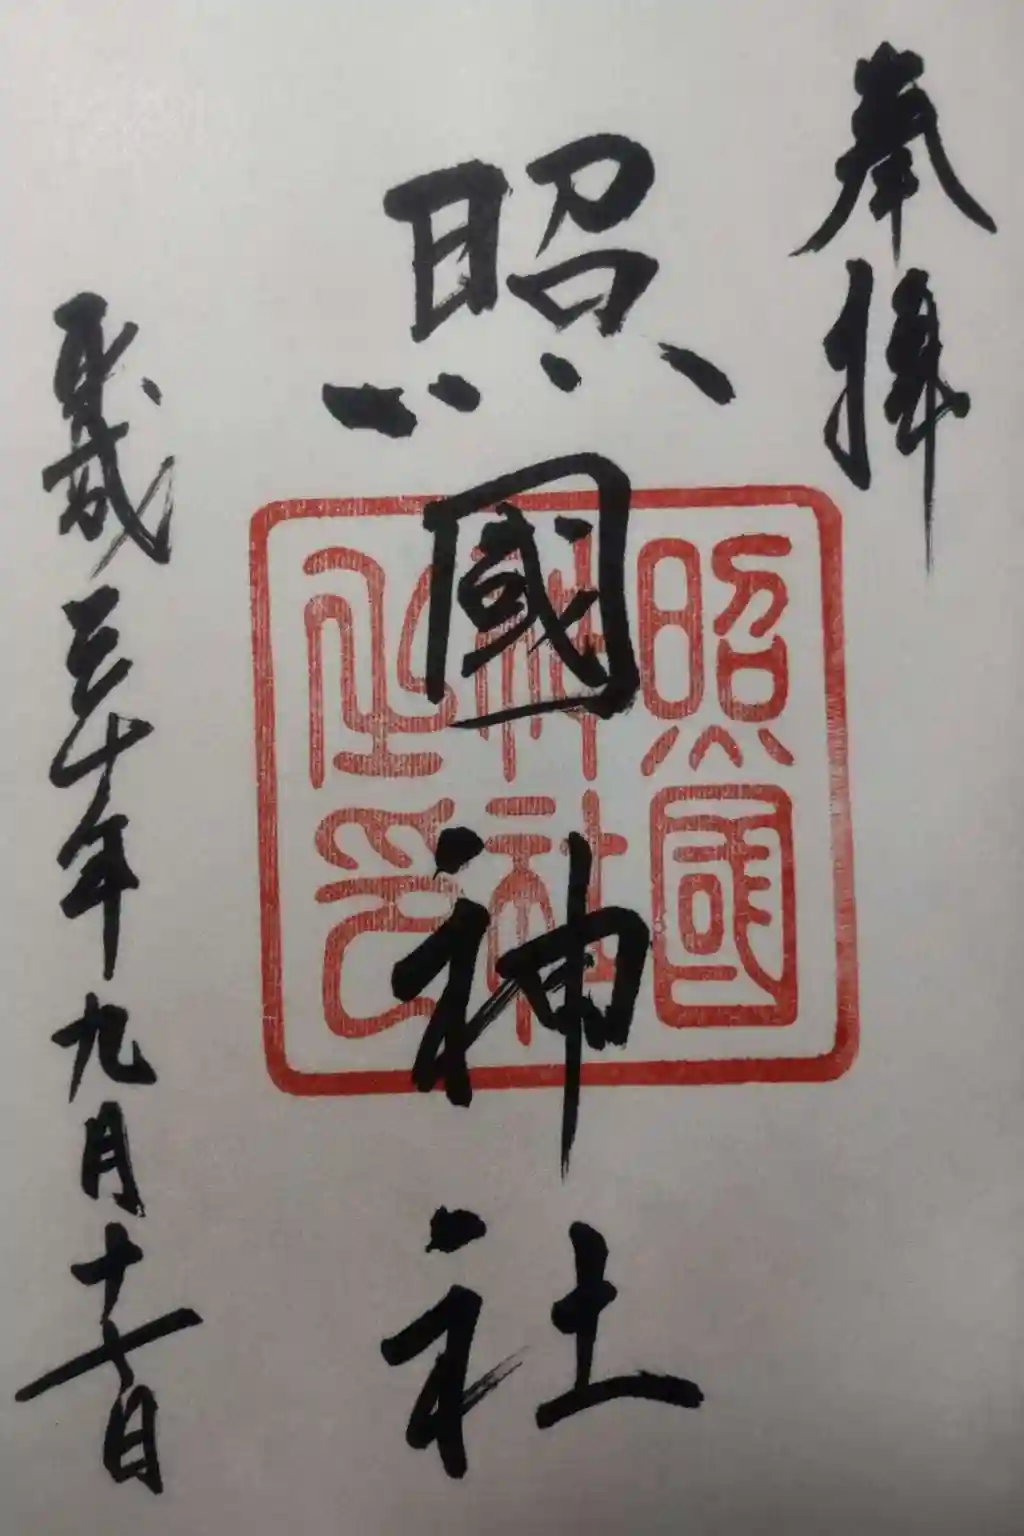 奉拝
照國神社
照國
神社
之印
平成三十年九月十七日